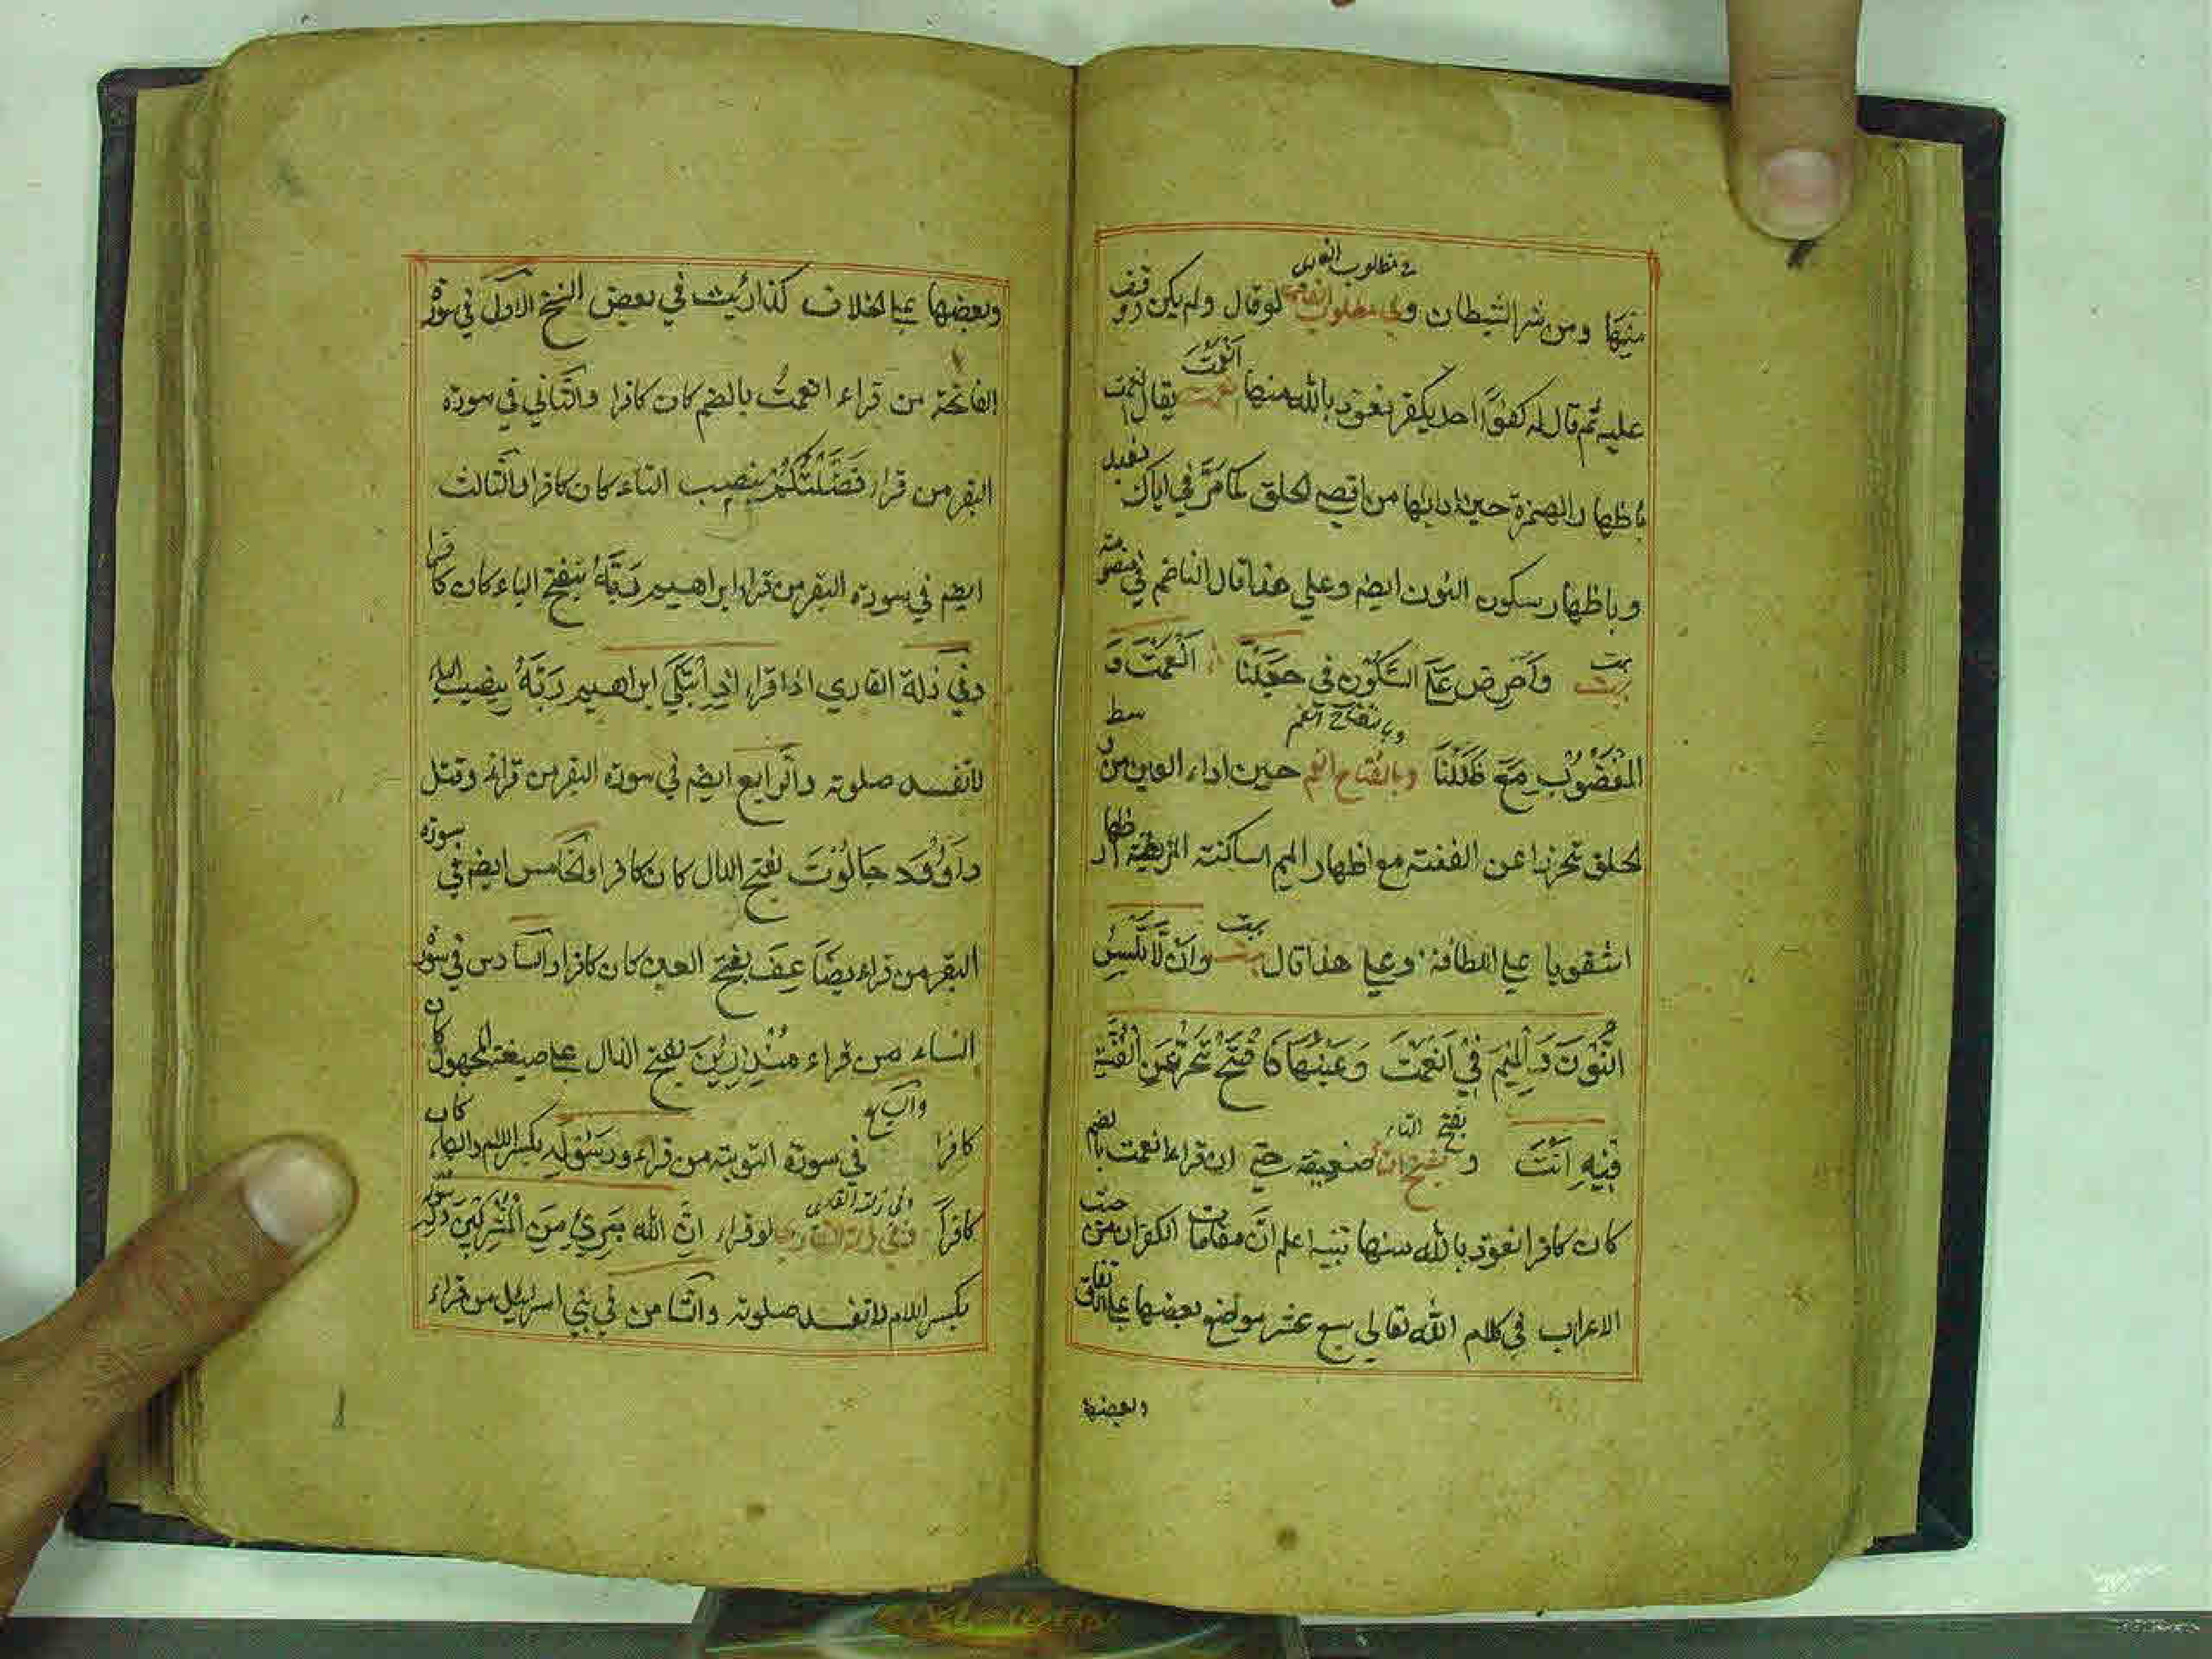 منها ومن شر الشيطان وفي مطلوب القاري لو قال ولم يكن وقف
عليه ثم قال له كفوًا احد يكفر نعوذ بالله منها انعمت يقال انعمت
باظهار الهمزة حين ادائها من اقصى الحلق كما مَرَّ في اياك نعبد
وباظهار سكون النون ايضم وعلي هذا قال الناضم في
بيت وَاَحْرِصْ عَلَى السُّكُوْنِ في جَعَلْنَا اَنْعَمْتَ وَ
الْمَغْضُوْبِ مَعَ ظَلَلْنَا وبانفتاح الفم حين اداء العين من وسط
الحلق تحرزا عن الغنته مع اظهار الميم الساكنته
على اللطافة وعلى هذا قال بيت
النُّوْنَ وَ الْمِيْمَ فِيْ اَنْعَمْتَ وَعَيْنُهَا فَتْحٌ تَحَرُّزٌ عَنِ الْغُنَّةِ
فِيْهِ اَنْتَ وبفتح التاء ضعيفة حتى ان قراء انعمت بالضم
كان كافرا نعوذ بالله منها تنبيه اعلم اَنَّ مقامات الكفران من حيث
الاعراب في كلام الله تعالي سبع عشر مواضع بعضها على اتفاق
وبعضها
وبعضها على الخلاف كذا رئيت في بعض النسخ الاول في سورة
الفاتحة من قراء انعمتُ بالضم كان كافرا والثاني في سورة
البقر من قراء فَضَّلْتَكُمْ بنصب التاء كان كافرا والثالث
ايضم في سورة البقر من قراء ابراهيم رَبَّهُ بفتح الباء كان كافرا
وفي ذلة القاري اذا قراء اذِ ابْتَلَى ابراهيم رَبَّهُ بنصب الباء
لا تفسد صلوته والرابع ايضم في سورة البقر من قراء وقتل
داَوٗدَ جَالُوْتَ بفتح الدال كان كافرا والخامس ايضم في سورة
البقر من قراء يضَاعَِفَ بفتح العين كان كافرا والسادس في سورة
النساء من قراء مُنْذِرِيْنَ بفتح الذال على صيغته المجهول كان
كافرا والسابع في سورة التوبته من قراء ورسُوْلِهِ بكسر اللام والهاء كان
كافرًا وفي زلة القاري لو قراء اِنَّ الله بَرِيْءٌ مِنَ الْمُشْرِكِيْنَ وَرسولِهِ
بكسر اللام لا تفسد صلوته والثامن في بني اسرائيل من قراء